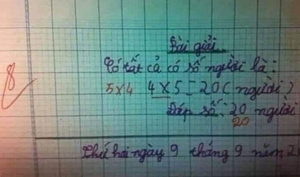 8
Bài giải
Có tất cả có số người là:
5x4 4 x 5 = 20 (người)
Đáp số: 20 người
20
Thứ hai ngày 9 tháng 9 năm 2